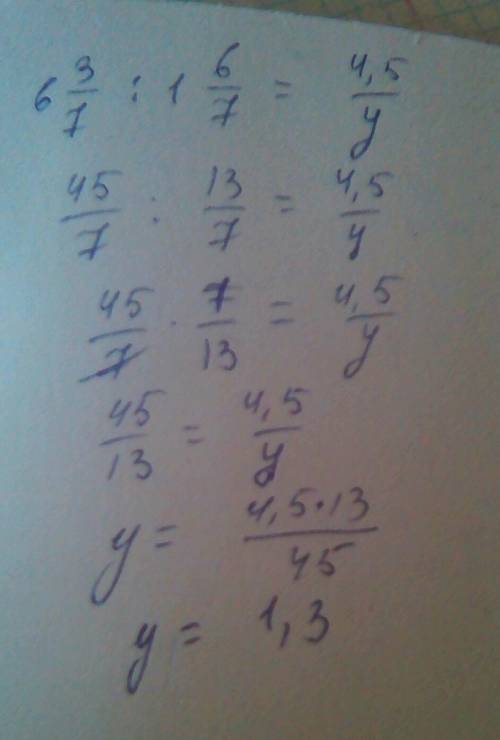 6 3/7 : 1 6/7 = 4,5/y
45/7 : 13/7 = 4,5/y
45/7 · 7/13 = 4,5/y
45/13 = 4,5/y
y = 4,5·13/45
y = 1,3